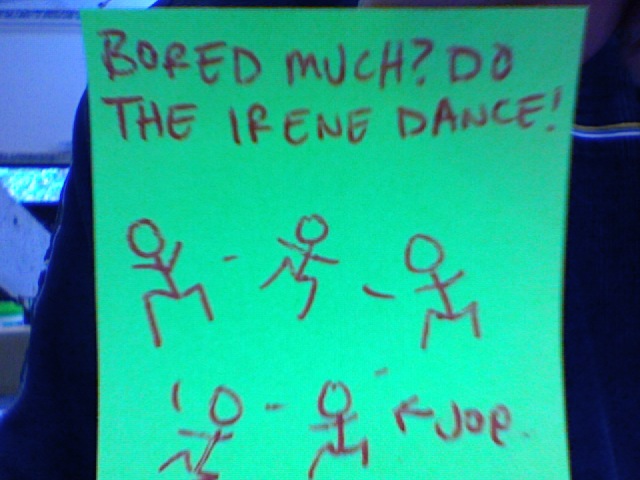 BORED MUCH? DO
THE IRENE DANCE!
JOE.